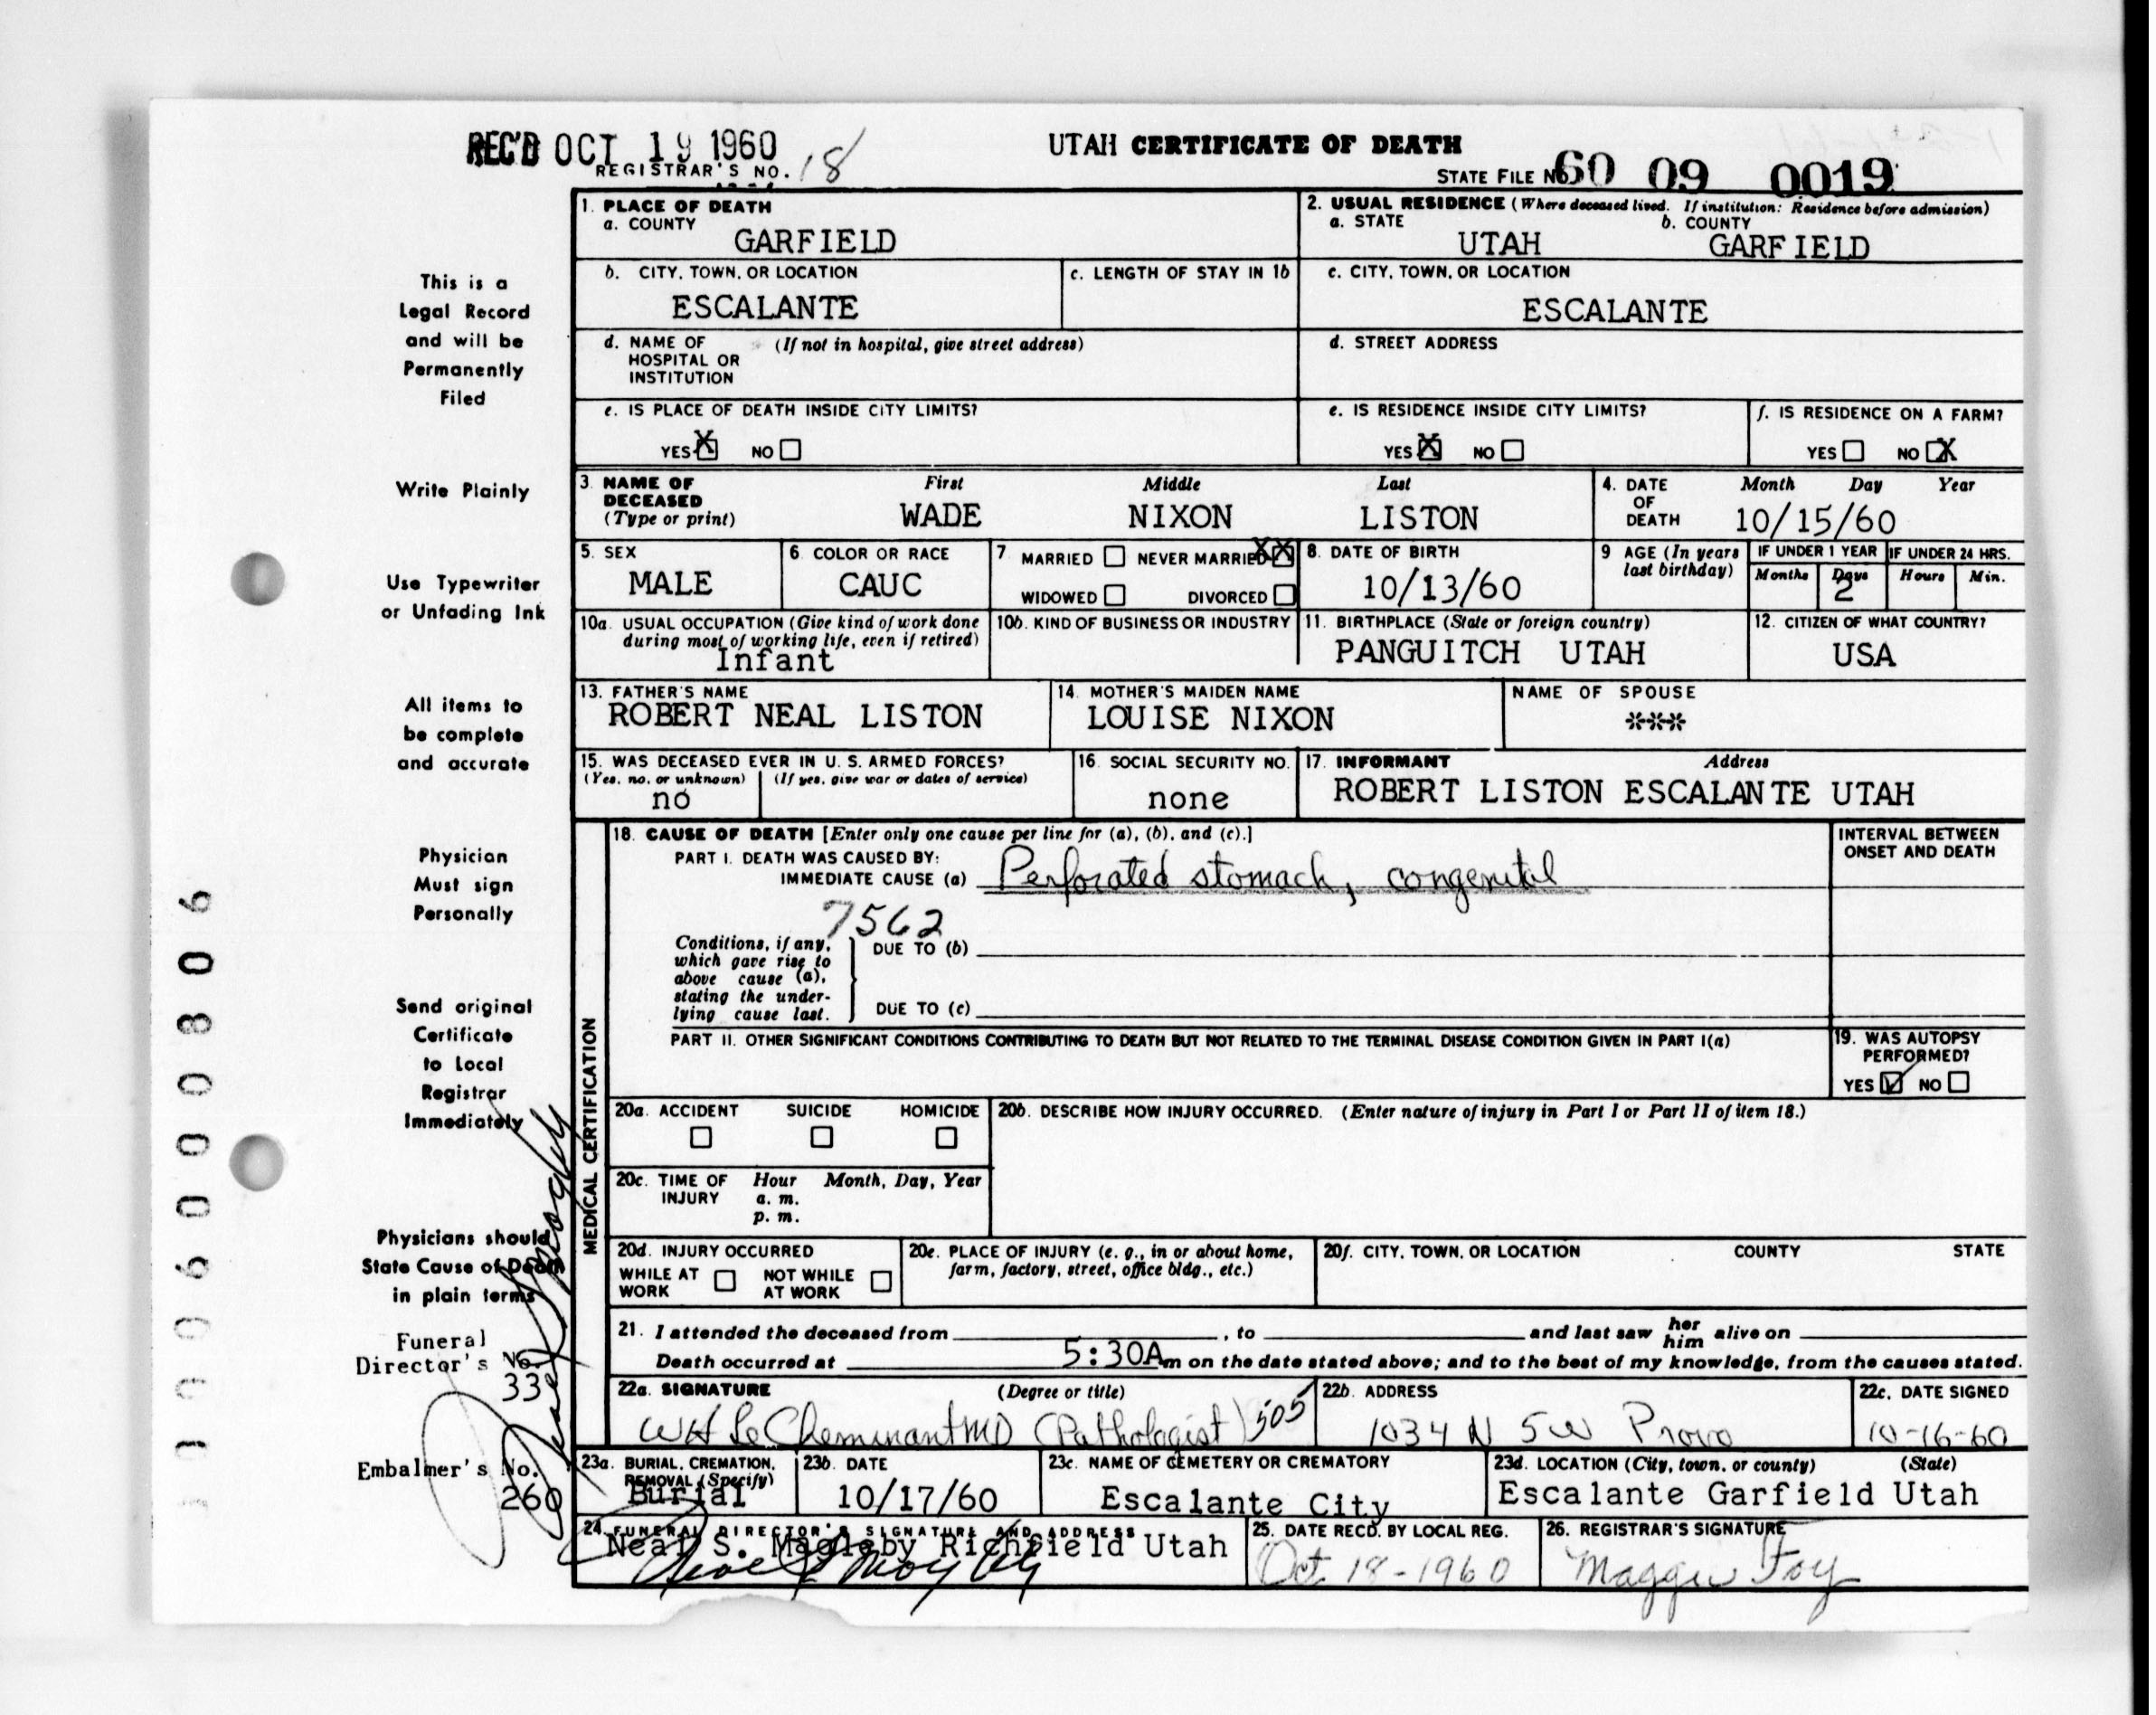 REC'D OCT 19 1960
REGISTRAR'S NO. 18
UTAH CERTIFICATE OF DEATH
STATE FILE NO. 60 09 0019
This is a
Legal Record
and will be
Permanently
Filed
Write Plainly
Use Typewriter
or Unfading Ink
All items to
be complete
and accurate
Physician
Must sign
Personally
Send original
Certificate
to Local
Registrar
Immediately
Physicians should
State Cause of Death
in plain terms
Funeral
Director's No.
33
Embalmer's No.
260
1. PLACE OF DEATH
a. COUNTY
GARFIELD
2. USUAL RESIDENCE (Where deceased lived. If institution: Residence before admission)
a. STATE b. COUNTY
UTAH GARFIELD
b. CITY, TOWN, OR LOCATION
ESCALANTE
c. LENGTH OF STAY IN 1b
c. CITY, TOWN, OR LOCATION
ESCALANTE
d. NAME OF (If not in hospital, give street address)
HOSPITAL OR
INSTITUTION
d. STREET ADDRESS
e. IS PLACE OF DEATH INSIDE CITY LIMITS?
YES X NO
e. IS RESIDENCE INSIDE CITY LIMITS?
YES X NO
f. IS RESIDENCE ON A FARM?
YES NO X
3. NAME OF DECEASED (Type or print)
First Middle Last
WADE NIXON LISTON
4. DATE OF DEATH
Month Day Year
10/15/60
5. SEX
MALE
6. COLOR OR RACE
CAUC
7. MARRIED NEVER MARRIED XX
WIDOWED DIVORCED
8. DATE OF BIRTH
10/13/60
9 AGE (In years last birthday)
IF UNDER 1 YEAR IF UNDER 24 HRS.
Months Days Hours Min.
2
10a. USUAL OCCUPATION (Give kind of work done
during most of working life, even if retired)
Infant
10b. KIND OF BUSINESS OR INDUSTRY
11. BIRTHPLACE (State or foreign country)
PANGUITCH UTAH
12. CITIZEN OF WHAT COUNTRY?
USA
13. FATHER'S NAME
ROBERT NEAL LISTON
14. MOTHER'S MAIDEN NAME
LOUISE NIXON
NAME OF SPOUSE
***
15. WAS DECEASED EVER IN U. S. ARMED FORCES?
(Yes, no, or unknown) (If yes, give war or dates of service)
no
16. SOCIAL SECURITY NO.
none
17. INFORMANT Address
ROBERT LISTON ESCALANTE UTAH
MEDICAL CERTIFICATION
18. CAUSE OF DEATH [Enter only one cause per line for (a), (b), and (c).]
INTERVAL BETWEEN
ONSET AND DEATH
PART I. DEATH WAS CAUSED BY:
IMMEDIATE CAUSE (a) Perforated stomach, congenital
7562
Conditions, if any,
which gave rise to
above cause (a),
stating the under-
lying cause last.
DUE TO (b)
DUE TO (c)
PART II. OTHER SIGNIFICANT CONDITIONS CONTRIBUTING TO DEATH BUT NOT RELATED TO THE TERMINAL DISEASE CONDITION GIVEN IN PART I(a)
19. WAS AUTOPSY
PERFORMED?
YES NO
20a. ACCIDENT SUICIDE HOMICIDE
20b. DESCRIBE HOW INJURY OCCURRED. (Enter nature of injury in Part I or Part II of item 18.)
20c. TIME OF INJURY
Hour Month, Day, Year
a. m.
p. m.
20d. INJURY OCCURRED
WHILE AT WORK NOT WHILE AT WORK
20e. PLACE OF INJURY (e. g., in or about home,
farm, factory, street, office bldg., etc.)
20f. CITY, TOWN, OR LOCATION COUNTY STATE
21. I attended the deceased from , to and last saw her him alive on
Death occurred at 5:30A m on the date stated above; and to the best of my knowledge, from the causes stated.
22a. SIGNATURE (Degree or title)
WH Le Cheminant MD (Pathologist) 505
22b. ADDRESS
1034 N 5 W Provo
22c. DATE SIGNED
10-16-60
23a. BURIAL, CREMATION,
REMOVAL (Specify)
Burial
23b. DATE
10/17/60
23c. NAME OF CEMETERY OR CREMATORY
Escalante City
23d. LOCATION (City, town, or county) (State)
Escalante Garfield Utah
24. FUNERAL DIRECTOR'S SIGNATURE AND ADDRESS
Neal S. Magleby Richfield Utah
Neal S Magleby
25. DATE RECD. BY LOCAL REG.
Oct 18-1960
26. REGISTRAR'S SIGNATURE
Maggie Foy